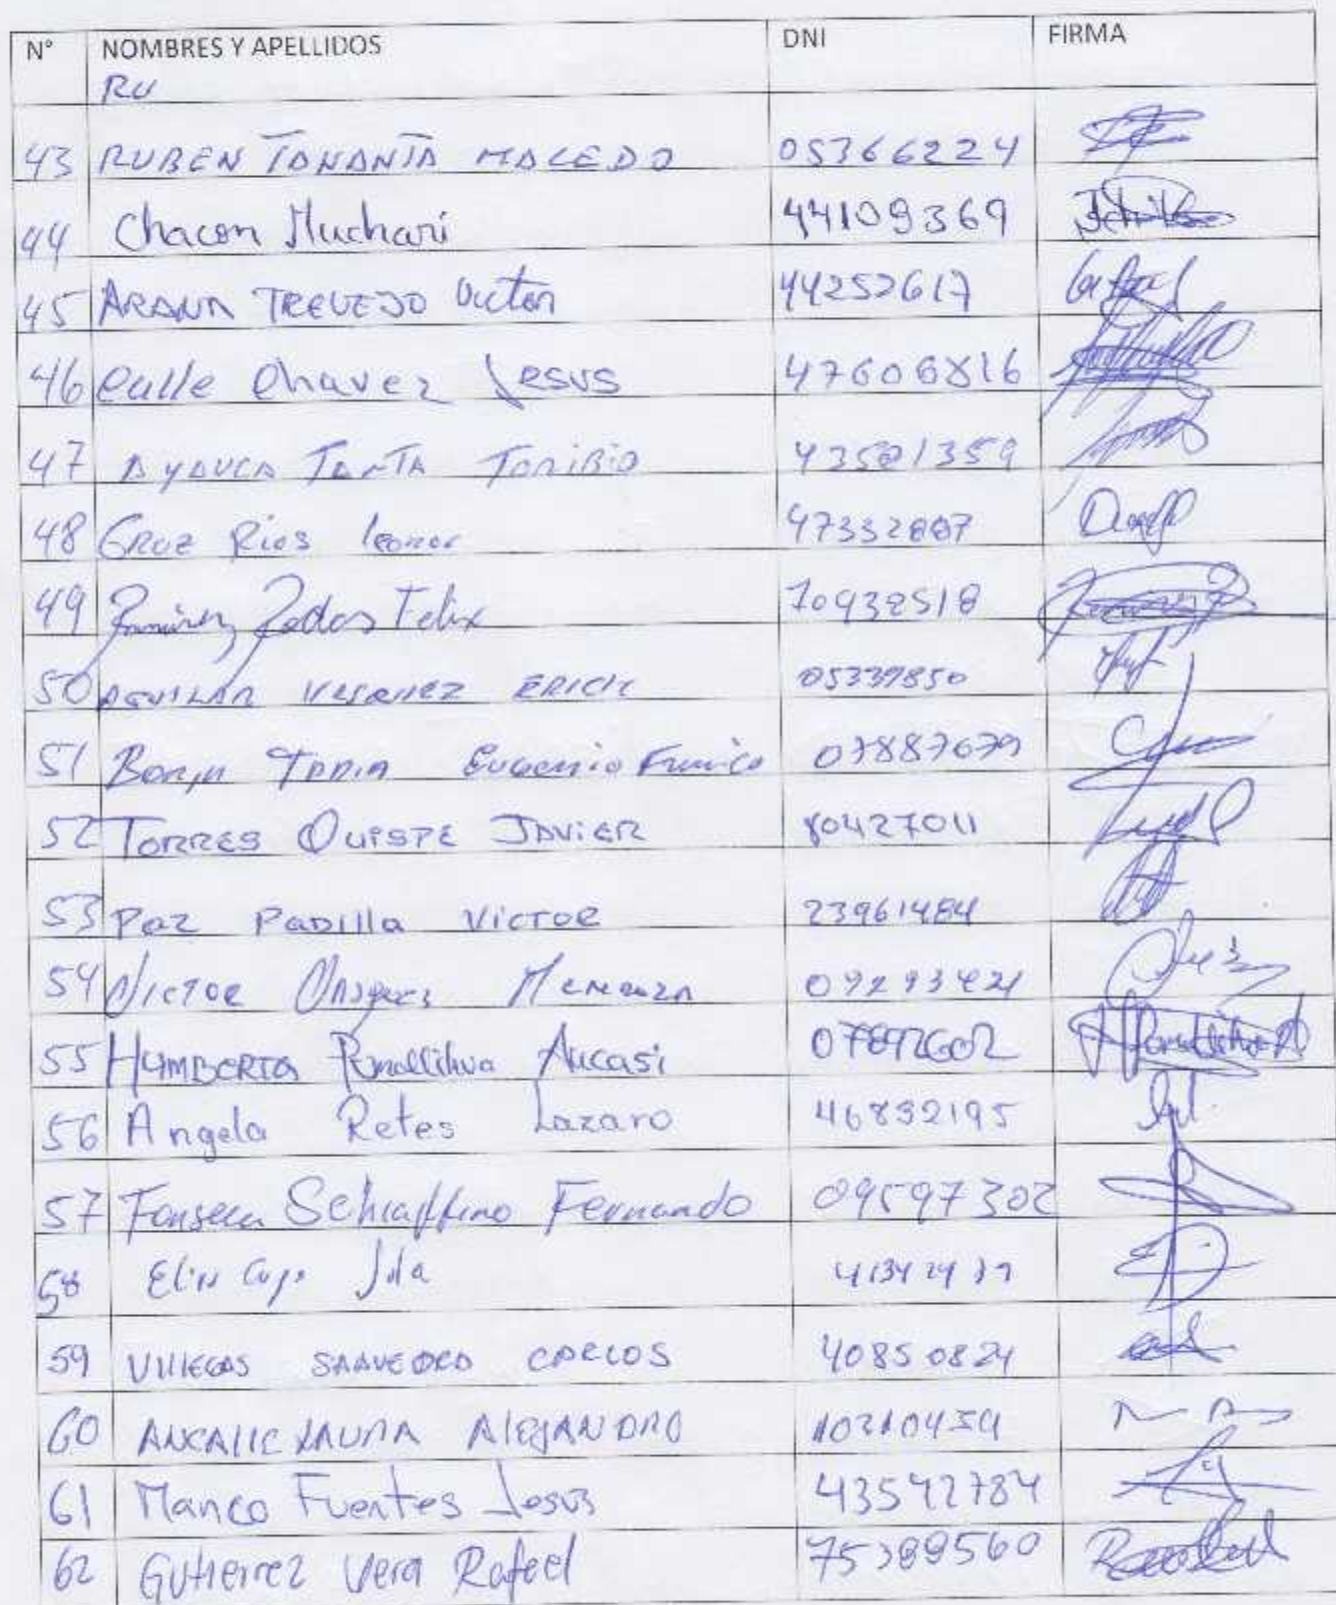 N° NOMBRES Y APELLIDOS DNI FIRMA
RU
43 RUBEN TANANTA MACEDO 05366224
44 Chacon Muchari 44109369
45 ARANA TREVEJO Victor 44252617
46 Calle Chavez Jesus 47606816
47 AYAUCA TANTA TORIBIO 43581359
48 CRUZ Rios leonor 47332887
49 Ramirez Felix 70932518
50 AGUILAR VASQUEZ ERICK 05339850
51 TAPIA Eugenio 07887679
52 TORRES QUISPE JAVIER 80427011
53 Paz PADILLA VICTOR 23961484
54 VICTOR 09293421
55 HUMBERTA Pomallihua Aucasi 07892602
56 Angela Retes Lazaro 46832195
57 Fonseca Schiaffino Fernando 09597302
58
59 VILLEGAS SAAVEDRA CARLOS 40850824
60 ANCALLE LAURA ALEJANDRO 10210454
61 Manco Fuentes Jesus 43542784
62 Gutierrez Vera Rafael 75389560